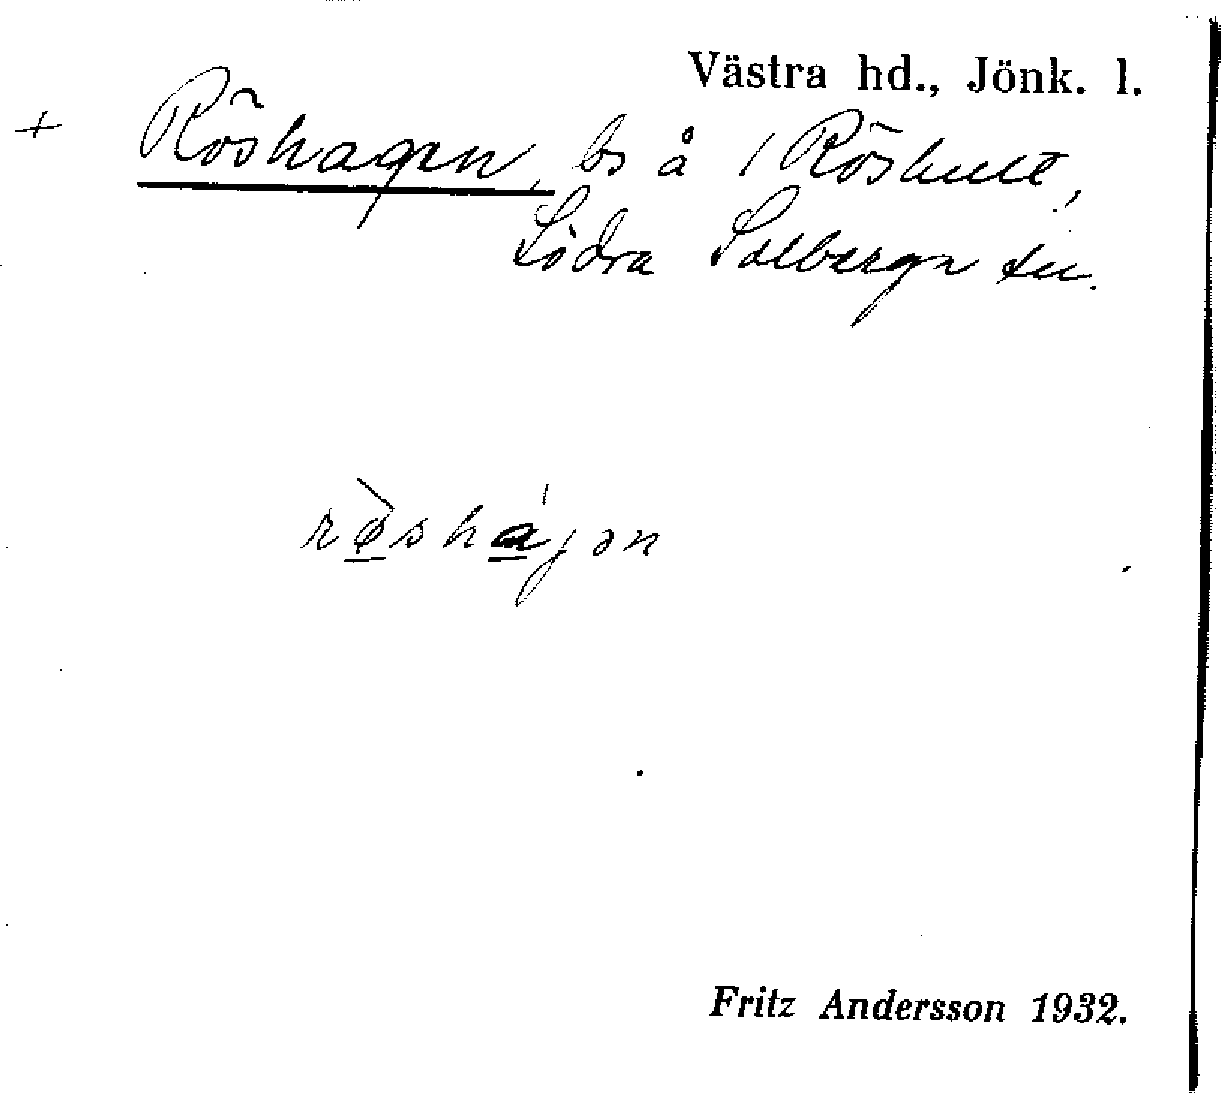 Västra hd., Jönk. l.
+ Röshagen, bs å 1 Röshult,
Södra Solberga sn.
rø̀shágən
Fritz Andersson 1932.